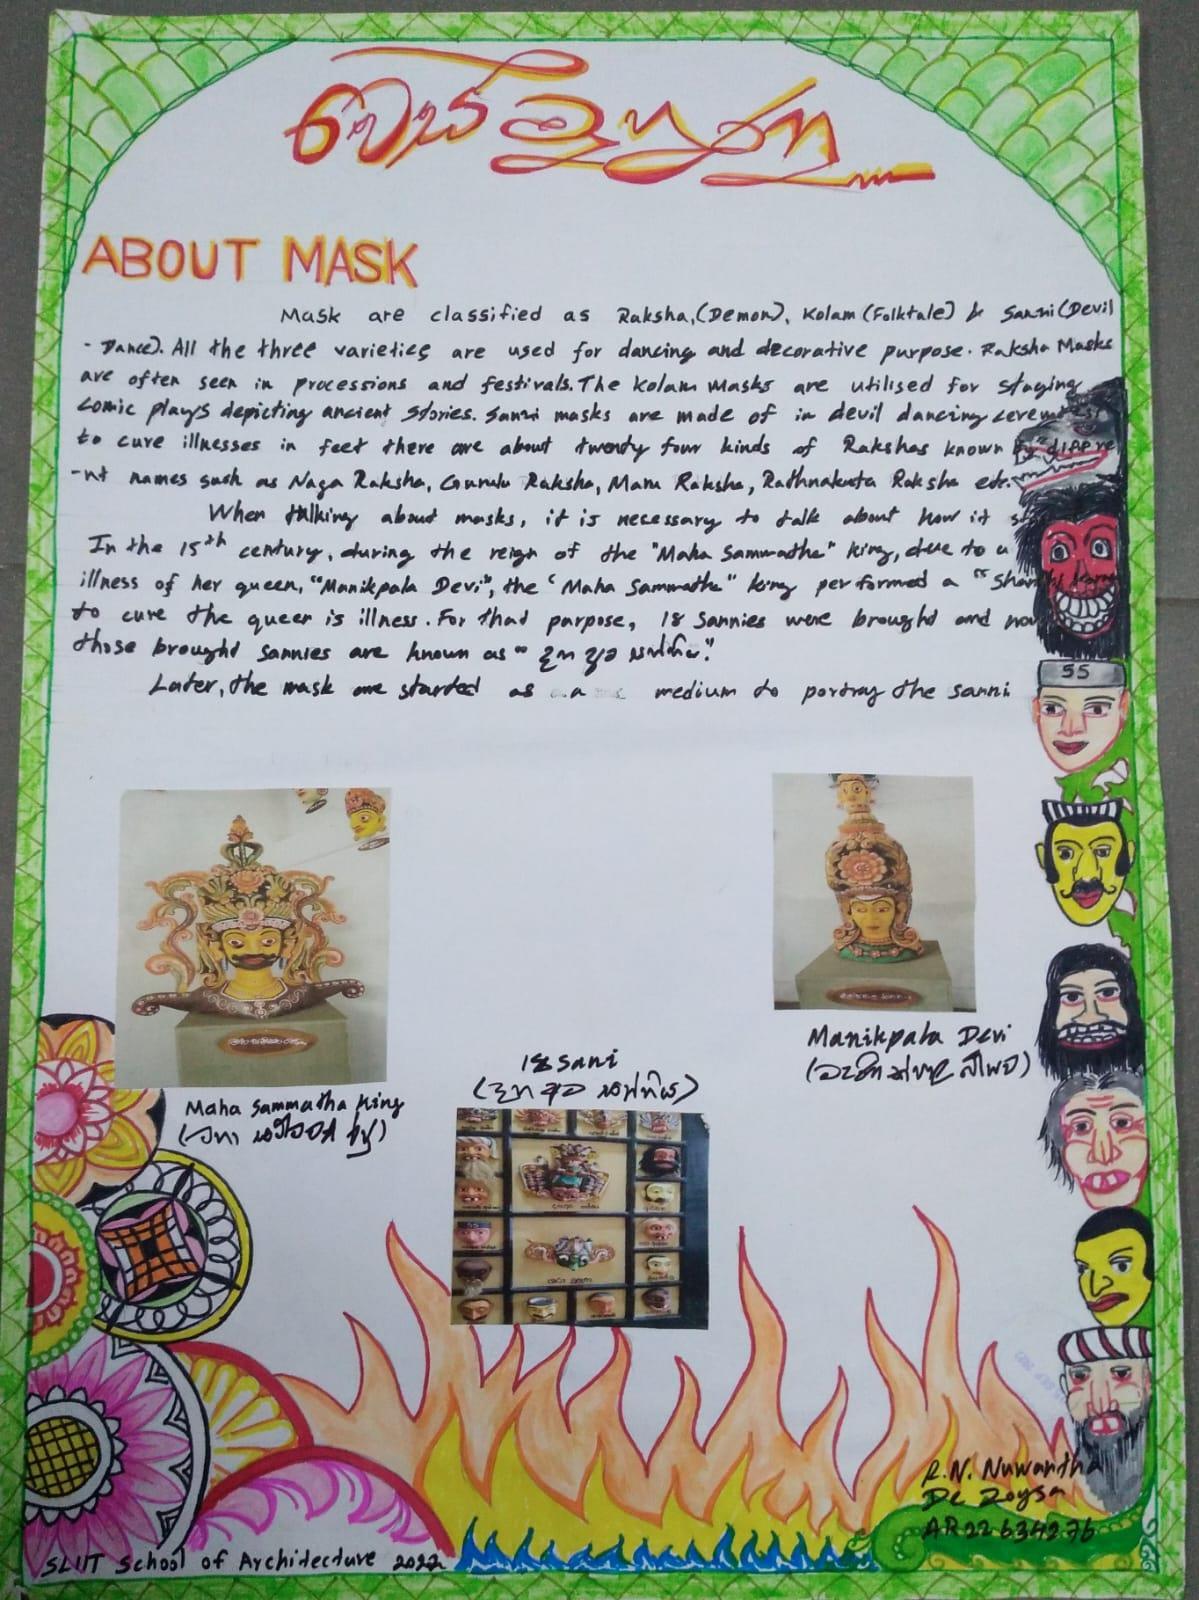 වෙස් මුහුණ
ABOUT MASK
Mask are classified as Raksha,(Demon), Kolam (Folktale) & Sanni (Devil
- Dance). All the three varieties are used for dancing and decorative purpose. Raksha Masks
are often seen in processions and festivals. The Kolam Masks are utilised for staging
comic plays depicting ancient stories. Sanni masks are made of in devil dancing
to cure illnesses in fect there are about twenty four kinds of Rakshas known by differe
-nt names such as Naga Raksha, Gurulu Raksha, Maru Raksha, Rathnakuta Raksha etc.
When talking about masks, it is necessary to talk about how it
In the 15th century, during the reign of the "Maha Sammatha" king, due to
illness of her queen, "Manikpala Devi", the ‘Maha Sammatha" king performed a "
to cure the queen is illness. For that purpose, 18 Sannies were brought and now
those brought Sannies are known as "දහ අට සන්නිය".
Later, the mask are started as a medium to portray the sanni
55
Maha Sammatha King
(මහා සම්මත රජු)
18 Sani
(දහ අට සන්නිය)
Manikpala Devi
55
R.N. Nuwantha
De Zoysa
AR22634276
SLIIT School of Architecture 2022